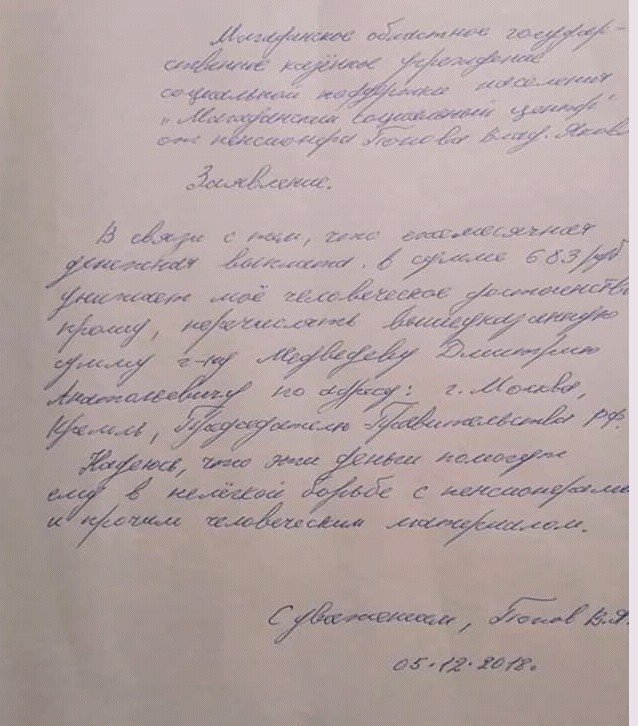 Магаданское областное государ-
ственное казённое учреждение
социальной поддержки населения
„Магаданский социальный центр"
от пенсионера Попова Влад. Яков
Заявление.
В связи с тем, что ежемесячная
денежная выплата в сумме 683 руб
унижает моё человеческое достоинство
прошу, перечислять вышеуказанную
сумму г-ну Медведеву Дмитрию
Анатольевичу по адресу: г. Москва,
Кремль, Председателю Правительства РФ.
Надеюсь, что эти деньги помогут
ему в нелёгкой борьбе с пенсионерами
и прочим человеческим материалом.
С уважением, Попов В.Я.
05.12.2018.